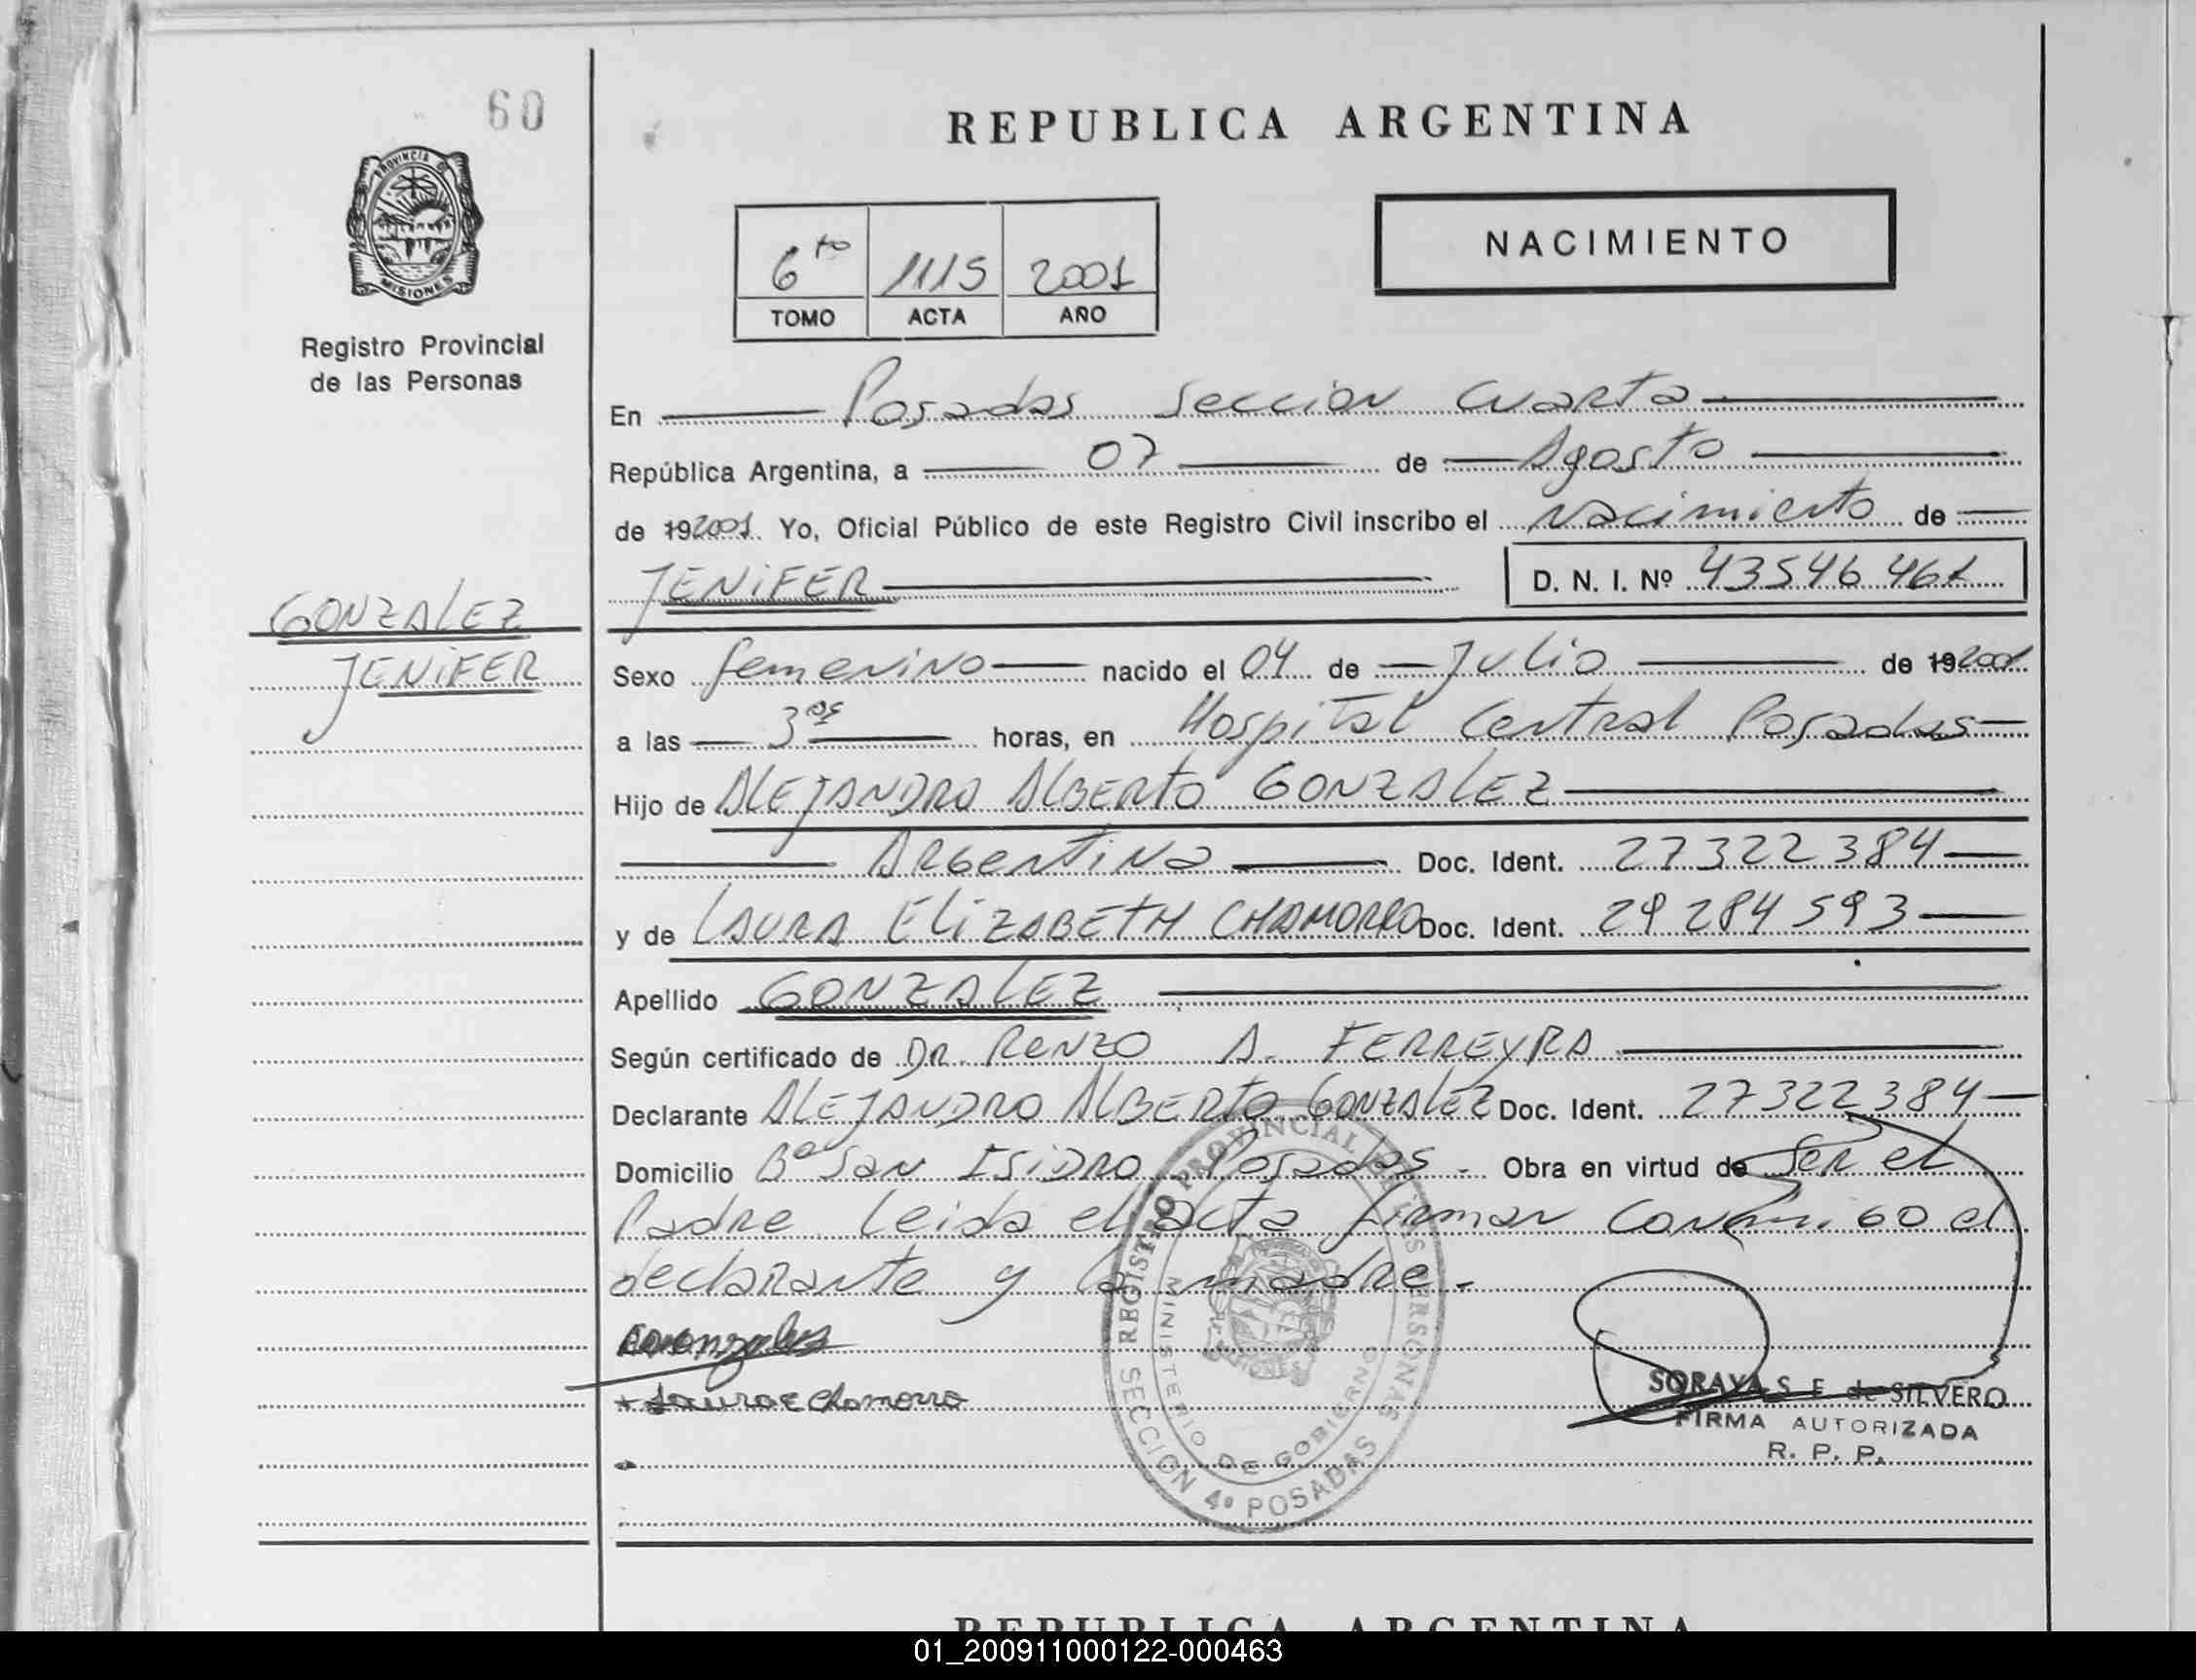 60
REPUBLICA ARGENTINA
PROVINCIA D
MISIONES
Registro Provincial
de las Personas
NACIMIENTO
6to 1115 2001
TOMO ACTA AÑO
En Posadas Seccion Cuarta
República Argentina, a 07 de Agosto
de 192001. Yo, Oficial Público de este Registro Civil inscribo el Nacimiento de
JENIFER D. N. I. Nº 43546461
GONZALEZ
JENIFER
Sexo femenino nacido el 04 de Julio de 192001
a las 3 horas, en Hospital Central Posadas
Hijo de ALEJANDRO ALBERTO GONZALEZ
Argentina Doc. Ident. 27322384
y de LAURA ELIZABETH CHAMORRO Doc. Ident. 29284593
Apellido GONZALEZ
Según certificado de DR. RENZO A. FERREYRA
Declarante ALEJANDRO ALBERTO GONZALEZ Doc. Ident. 27322384
Domicilio Bº San ISIDRO Posadas - Obra en virtud de Ser el
Padre leida el acta firman Conmigo el
declarante y la madre.
Laura E Chamorro
REGISTRO PROVINCIAL DE LAS PERSONAS
MINISTERIO DE GOBIERNO
SECCION 4º POSADAS
SORAYA S. E. de SILVERO
FIRMA AUTORIZADA
R. P. P.
REPUBLICA ARGENTINA
01_200911000122-000463